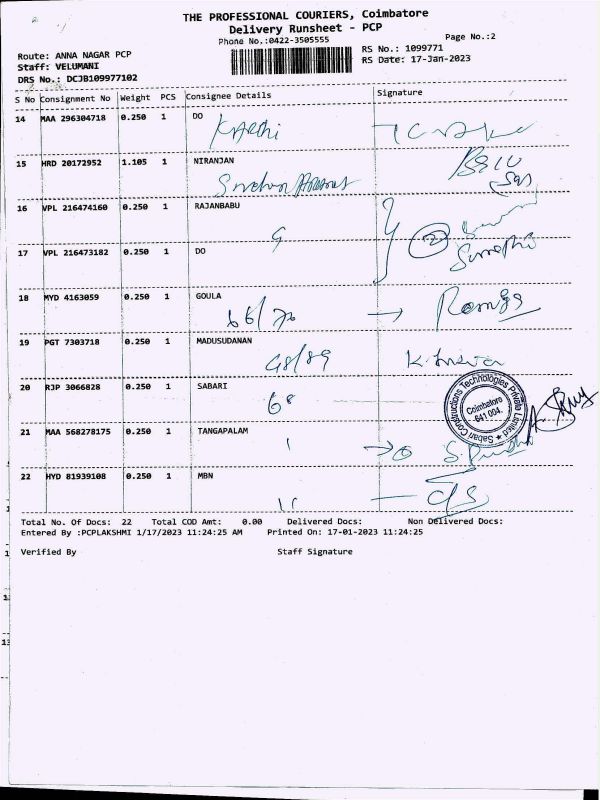 THE PROFESSIONAL COURIERS, Coimbatore
Delivery Runsheet - PCP
Phone No.:0422-3505555
Page No.:2
Route: ANNA NAGAR PCP
RS No.: 1099771
Staff: VELUMANI
RS Date: 17-Jan-2023
DRS No.: DCJB109977102
S No Consignment No Weight PCS Consignee Details Signature
14 MAA 296304718 0.250 1 DO
15 HRD 20172952 1.105 1 NIRANJAN
16 VPL 216474160 0.250 1 RAJANBABU
17 VPL 216473182 0.250 1 DO
18 MYD 4163059 0.250 1 GOULA
66/70
19 PGT 7303718 0.250 1 MADUSUDANAN
68/89
20 RJP 3066828 0.250 1 SABARI
Sabari Constructions Technologies Private Limited
Coimbatore
641 004.
21 MAA 568278175 0.250 1 TANGAPALAM
22 HYD 81939108 0.250 1 MBN
Total No. Of Docs: 22 Total COD Amt: 0.00 Delivered Docs: Non Delivered Docs:
Entered By :PCPLAKSHMI 1/17/2023 11:24:25 AM Printed On: 17-01-2023 11:24:25
Verified By Staff Signature